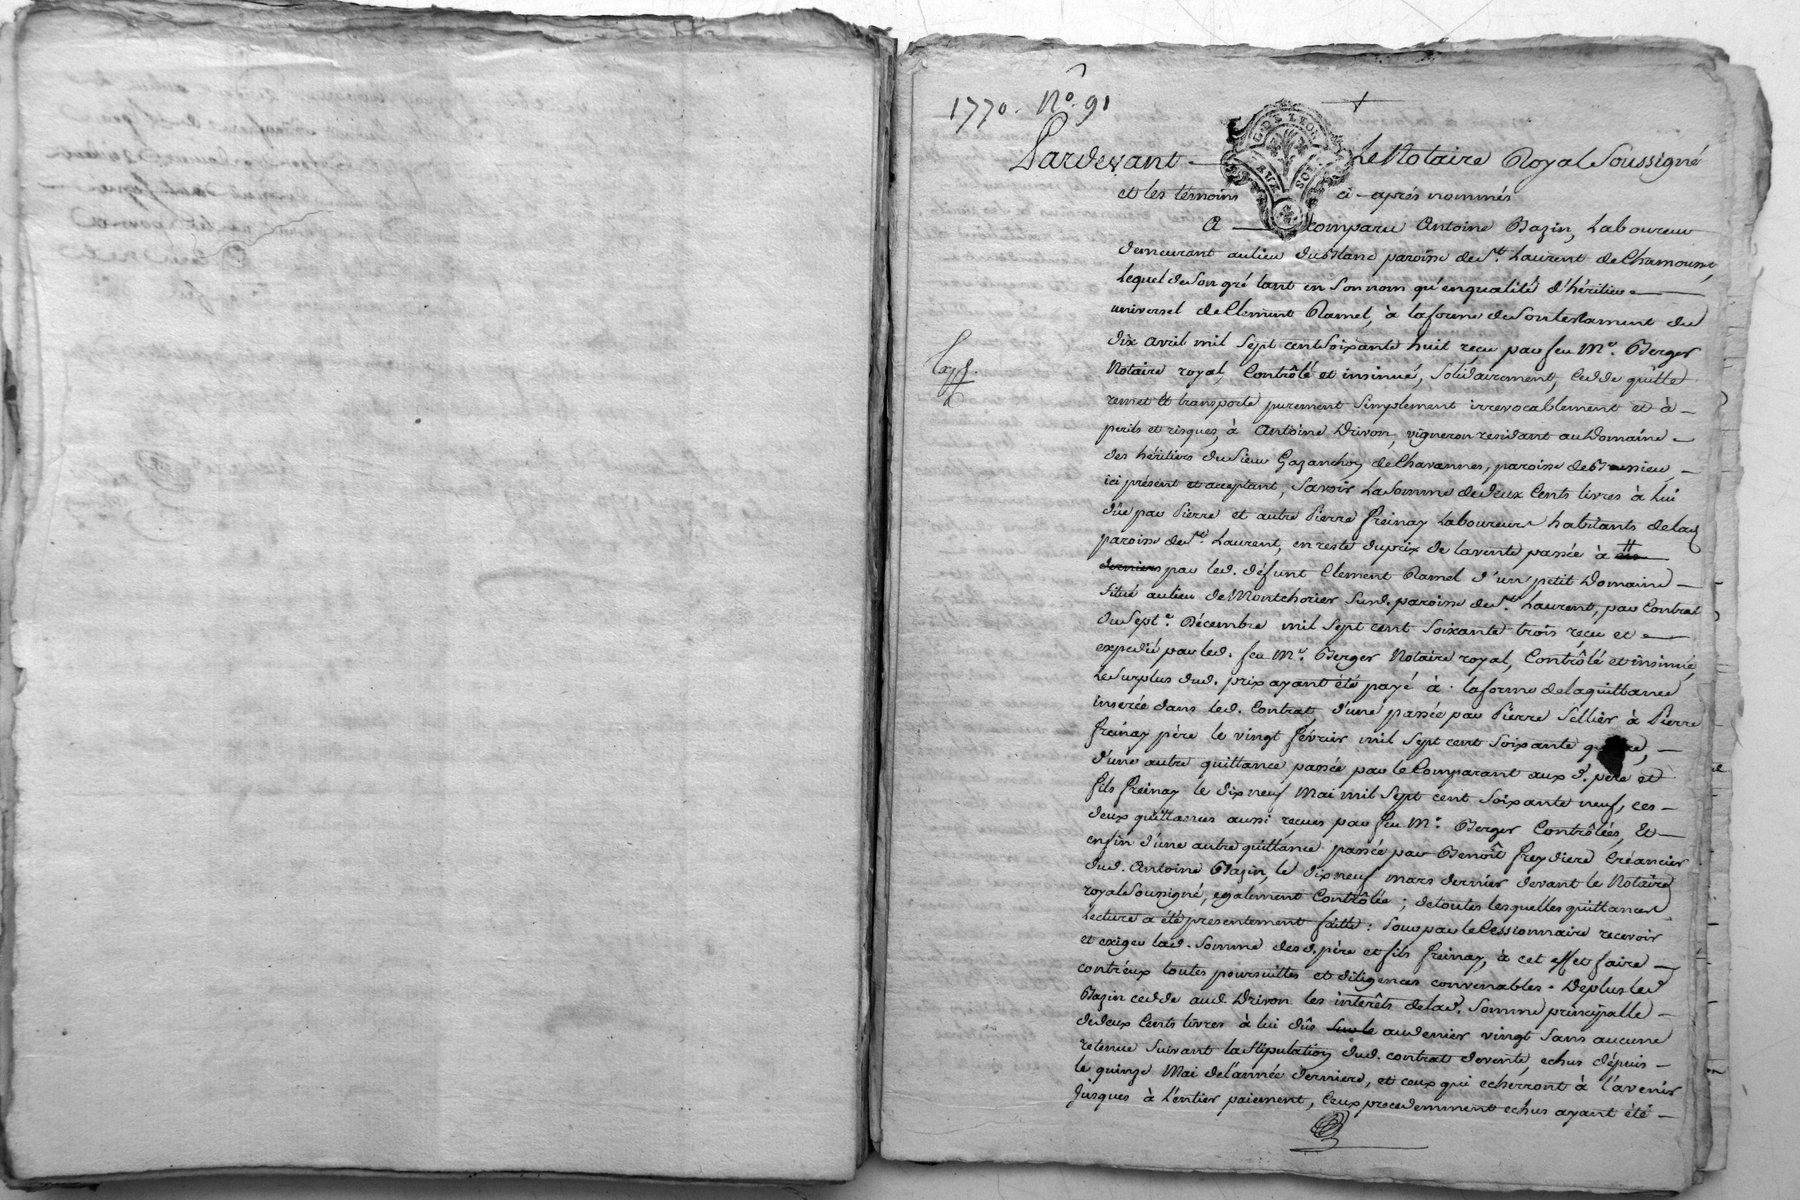 1770. No. 91
Pardevant Le Notaire Royal Soussigné
G. DE LYON
AUX SOL
et les témoins ci-après nommés
A comparu Antoine Bazin, Laboureur
demeurant au lieu du Blanc paroisse de St. Laurent de Chamousset,
Lequel de son gré tant en son nom qu'en qualité d'héritier
universel de Clement Ramel, à la forme de son testament du
dix avril mil sept cent soixante huit recu par feu Me. Berger
Notaire royal, Contrôlé et insinué, solidairement, cedde quitte
remet et transporte purement simplement irrevocablement et à
perils et risques, à Antoine Drivon, vigneron residant au Domaine
des héritiers du Sieur Gazanchon de Chavannes, paroisse de
ici présent et acceptant, Savoir La Somme de deux Cents livres à Lui
düe par Pierre et autre Pierre freinay Laboureurs habitants de lad
paroisse de St. Laurent, en reste du prix de la vente passée à
derniers par led. défunt Clement Ramel d'un petit Domaine
Situé au lieu de Montchorier sud. paroisse de St. Laurent, par Contrat
du Sept e. Décembre mil sept cent soixante trois reçu et
expedié par led. feu Me. Berger Notaire royal, Contrôlé et insinué,
Le Surplus dud. prix ayant été payé à la forme de la quittance
inserée dans led. Contrat, d'une passée par Pierre Sellier à Pierre
freinay père le vingt février mil sept cent soixante
d'une autre quittance passée par le Comparant aux d. père et
fils freinay le dix neuf Mai mil sept cent soixante neuf, ces
deux quittances aussi reçues par feu Me. Berger Contrôlées, Et
enfin d'une autre quittance passée par Benoît freydiere Créancier
dud. Antoine Bazin, le dix neuf mars dernier devant le Notaire
royal Soussigné, egalement Contrôlée; de toutes lesquelles quittances
Lecture a été présentement faitte: Pour par le Cessionnaire recevoir
et exiger lad. Somme desd. père et fils freinay, à cet effet faire
contr'eux toutes poursuittes et diligences convenables. De plus led
Bazin cedde aud. Drivon les intérêts de lad. Somme principalle
de deux Cents livres à lui dûs sur le au denier vingt sans aucune
retenue Suivant la Stipulation dud. contrat de vente, echus dépuis
le quinze Mai de l'année derniere, et ceux qui echerront à l'avenir
jusques à L'entier paiement, Ceux precedemment echus ayant été